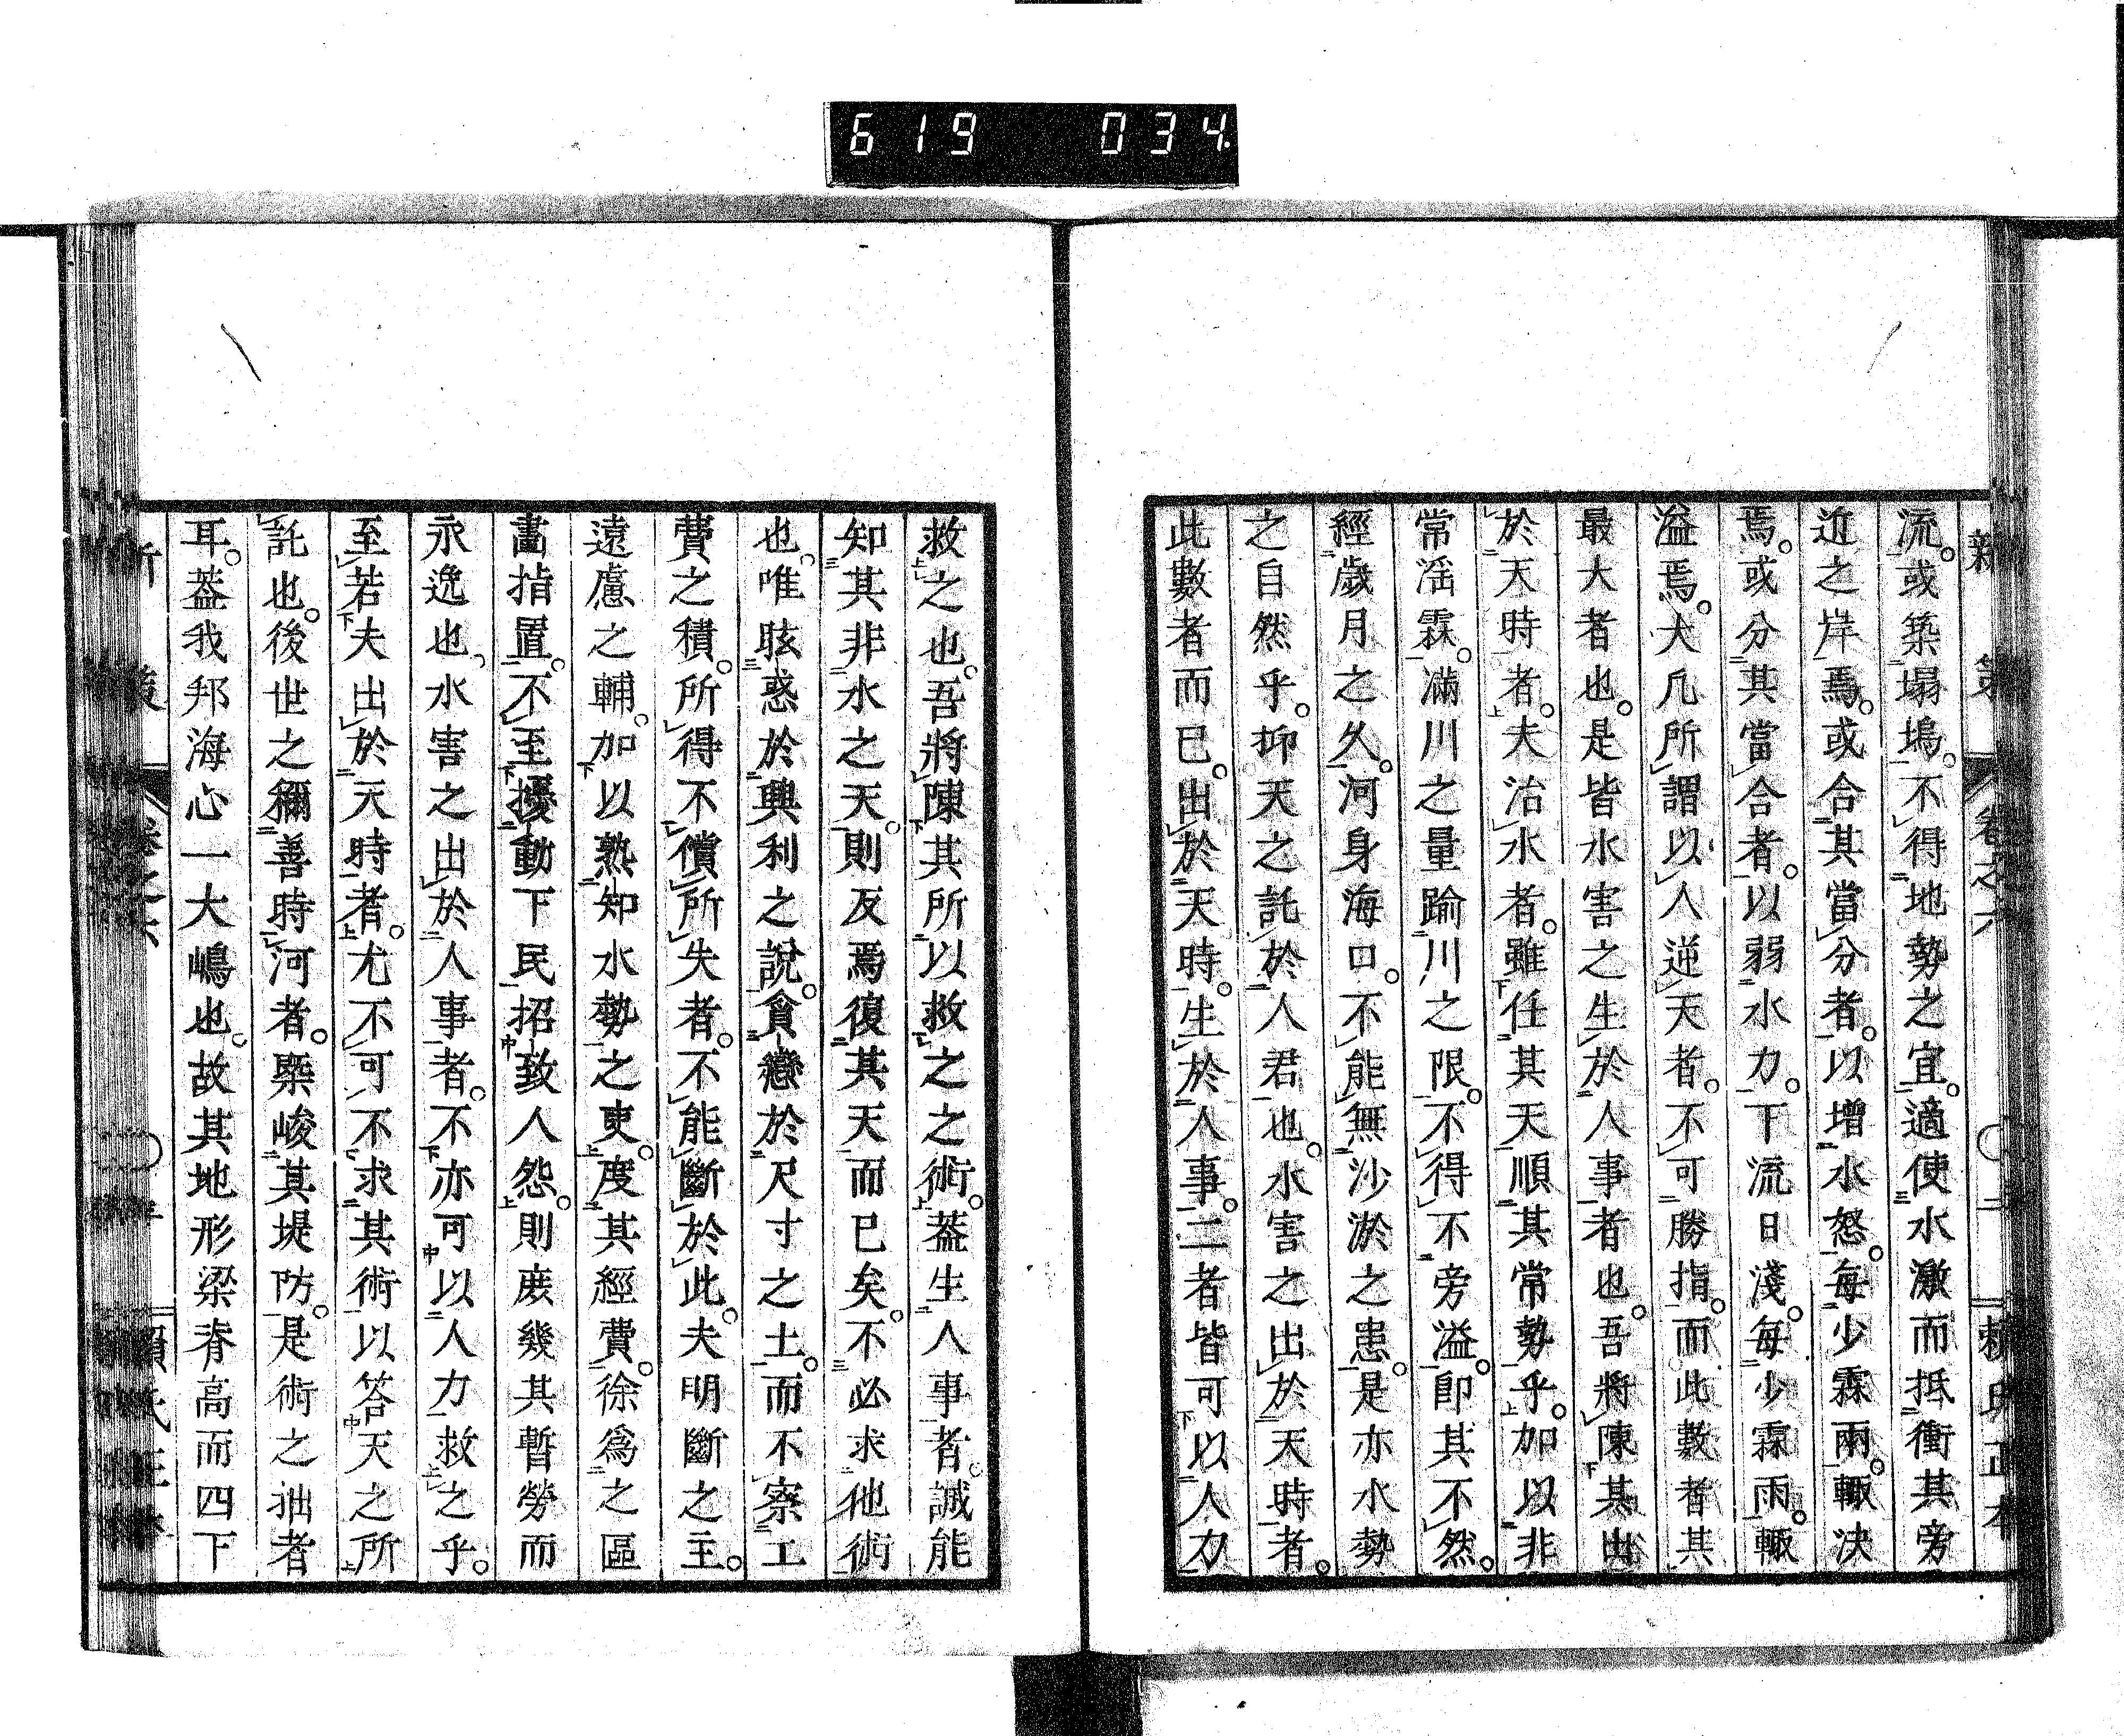 619 034
新策 卷之六 〇二 賴氏正本
流。或築塌塢。不得地勢之宜。適使水激而抵衝其旁
近之岸焉。或合其當分者。以增水怒。每少霖雨。輙決
焉。或分其當合者。以弱水力。下流日淺。每少霖雨。輙
溢焉。大凡所謂以人逆天者。不可勝指。而此數者其
最大者也。是皆水害之生於人事者也。吾將陳其出
於天時者。夫治水者。雖任其天順其常勢乎。加以非
常滛霖。滿川之量踰川之限。不得不旁溢。卽其不然。
經歲月之久。河身海口。不能無沙淤之患。是亦水勢
之自然乎。抑天之託於人君也。水害之出於天時者。
此數者而已。出於天時。生於人事。二者皆可以人力
救之也。吾將陳其所以救之之術。葢生人事者。誠能
知其非水之天。則反焉復其天而已矣。不必求他術
也。唯眩惑於興利之說。貪戀於尺寸之土。而不察工
費之積。所得不償所失者。不能斷於此。夫明斷之主。
遠慮之輔。加以熟知水勢之吏。度其經費。徐爲之區
畫措置。不至擾動下民招致人怨。則庶幾其暫勞而
永逸也。水害之出於人事者。不亦可以人力救之乎。
至若夫出於天時者。尤不可不求其術以答天之所
託也。後世之稱善時河者。槩峻其堤防。是術之拙者
耳。葢我邦海心一大嶋也。故其地形梁脊高而四下